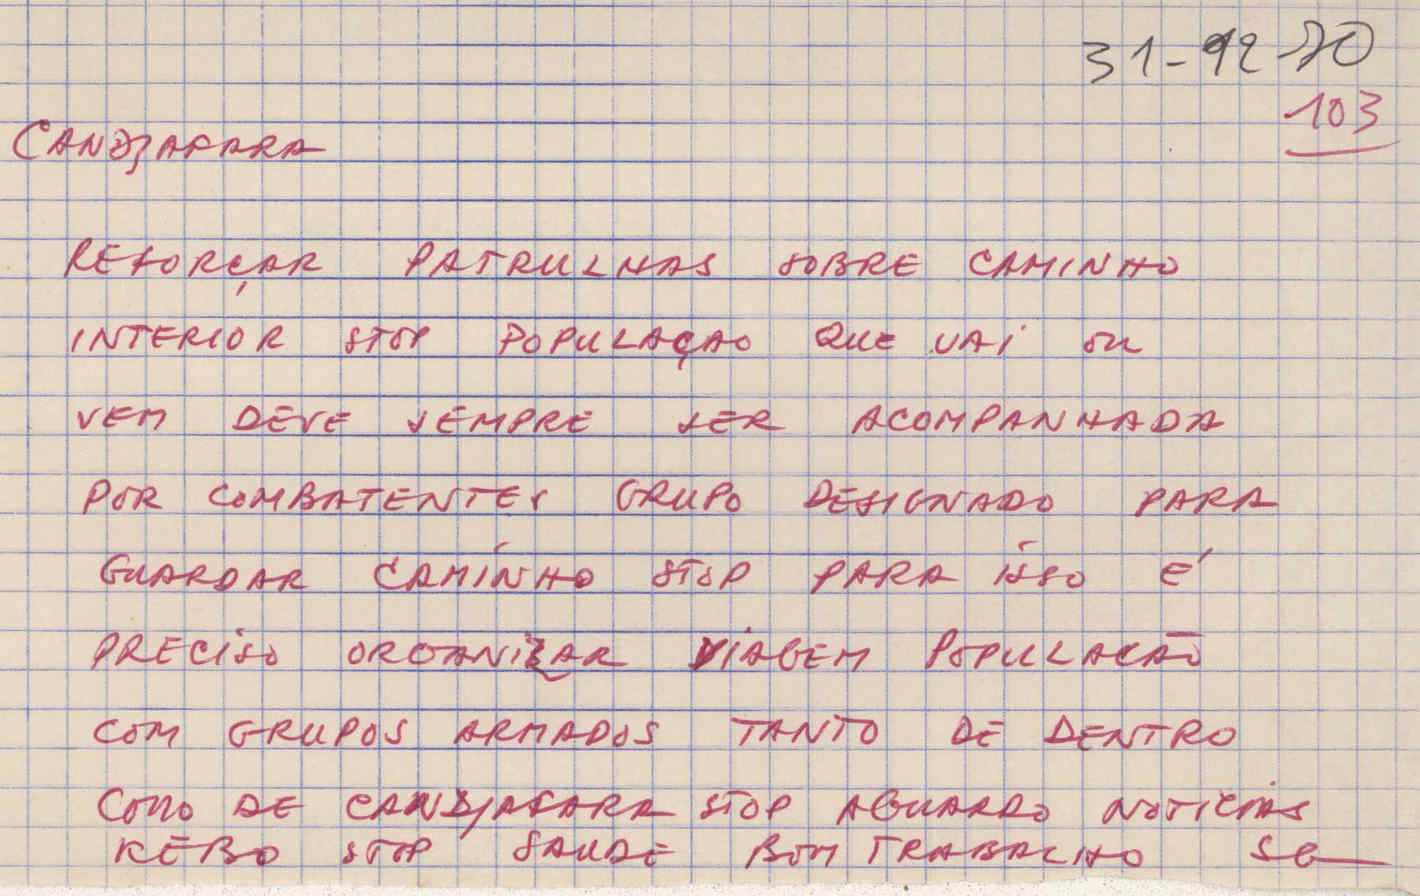 31-12-70
103
CANDJAFARA
REFORÇAR PATRULHAS SOBRE CAMINHO
INTERIOR STOP POPULAÇAO QUE VAI OU
VEM DEVE SEMPRE SER ACOMPANHADA
POR COMBATENTES GRUPO DESIGNADO PARA
GUARDAR CAMINHO STOP PARA ISSO É
PRECISO ORGANIZAR VIAGEM POPULACÃO
COM GRUPOS ARMADOS TANTO DE DENTRO
COMO DE CANDJAFARA STOP AGUARDO NOTICIAS
KEBO STOP SAUDE BOM TRABALHO SG